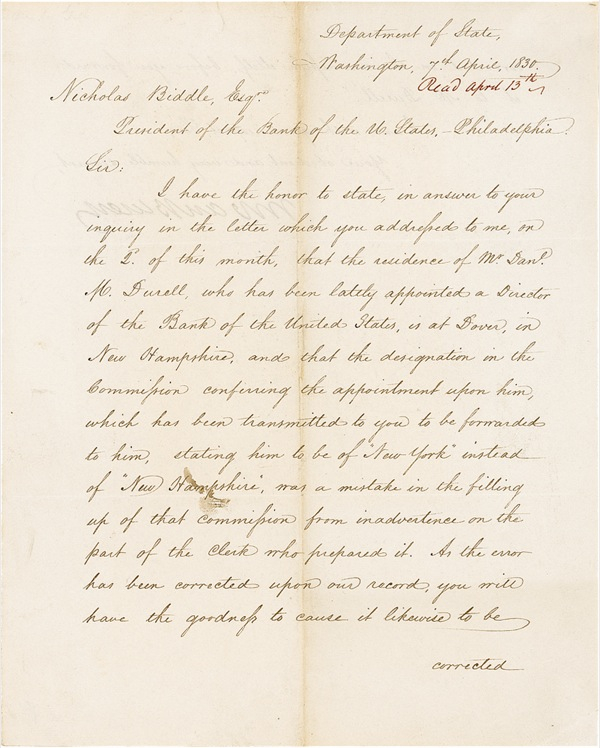 Department of State,
Washington, 7th April, 1830.
Read April 13th
Nicholas Biddle, Esqre.
President of the Bank of the U. States, – Philadelphia.
Sir:
I have the honor to state, in answer to your
inquiry in the letter which you addressed to me, on
the 2d. of this month, that the residence of Mr. Danl.
M. Durell, who has been lately appointed a Director
of the Bank of the United States, is at Dover, in
New Hampshire, and that the designation in the
Commission conferring the appointment upon him,
which has been transmitted to you to be forwarded
to him, stating him to be of "New York" instead
of "New Hampshire", was a mistake in the filling
up of that commission from inadvertence on the
part of the Clerk who prepared it. As the error
has been corrected upon our record, you will
have the goodness to cause it likewise to be
corrected